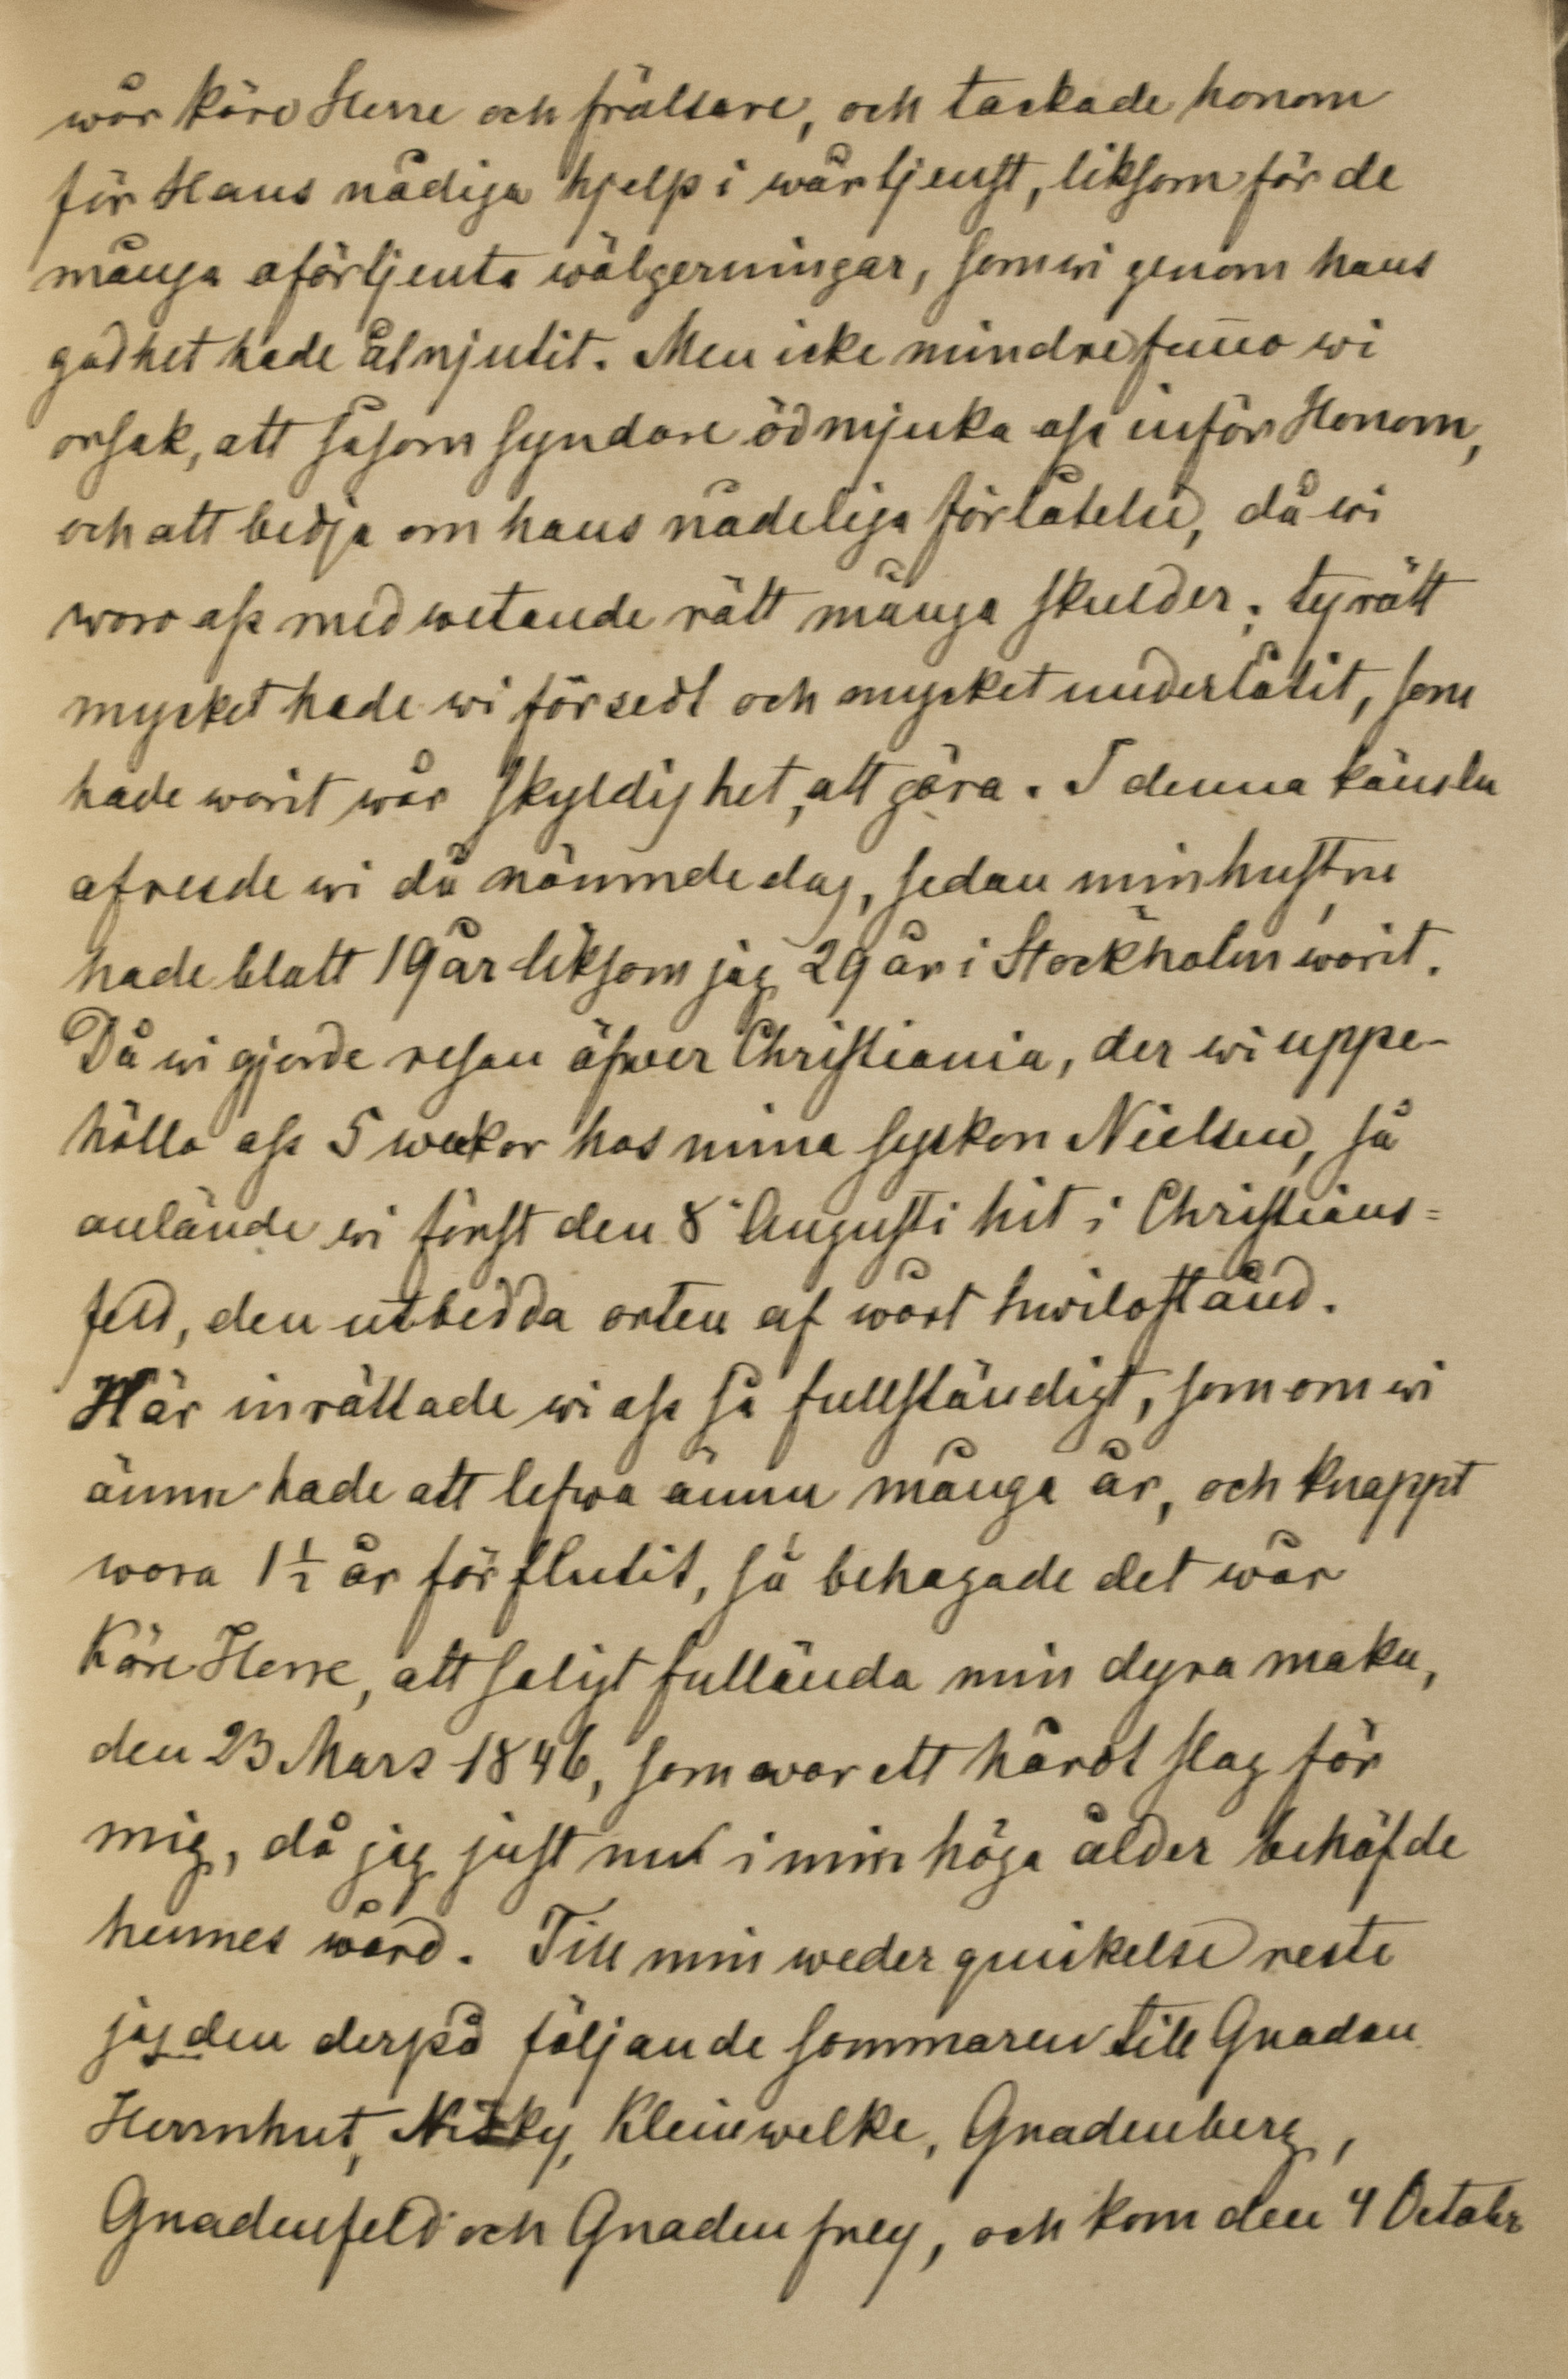 wår käre Herre och frälsare, och tackade honom
för Hans nådiga hjelp i wår tjenst, liksom för de
många oförtjenta wälgerningar, som wi genom hans
godhet hade åtnjutit. Men icke mindre funno wi
orsak, att såsom syndare ödmjuka oss inför Honom,
och att bedja om hans nådeliga förlåtelse, då wi
woro oss medwetande rätt många skulder; ty rätt
mycket hade wi försedt och mycket underlåtit, som
hade warit wår skyldighet, att göra. I denna känsla
afreste wi då nämnde dag, sedan min hustru
hade blott 19 år liksom jag 29 år i Stockholm warit.
Då wi gjorde resan öfwer Christiania, der wi uppe-
höllo oss 5 weckor hos mina syskon Nielsen, så
anlände wi först den 8 Augusti hit i Christians=
feld, den utbedda orten af wårt hwilostånd.
Här inrättade wi oss så fullständigt, som om wi
ännu hade att lefwa ännu många år, och knappt
wora 1½ år förflutit, så behagade det wår
Käre Herre, att saligt fullända min dyra maka,
den 23 Mars 1846, som war ett hårdt slag för
mig, då jag just nu i min höga ålder behöfde
hennes wård. Till min weder quickelse reste
jag den derpå följande sommaren till Gnadau
Herrnhut, Nisky, Kleinwelke, Gnadenberg,
Gnadenfeld och Gnadenfrey, och kom den 4 Octobr